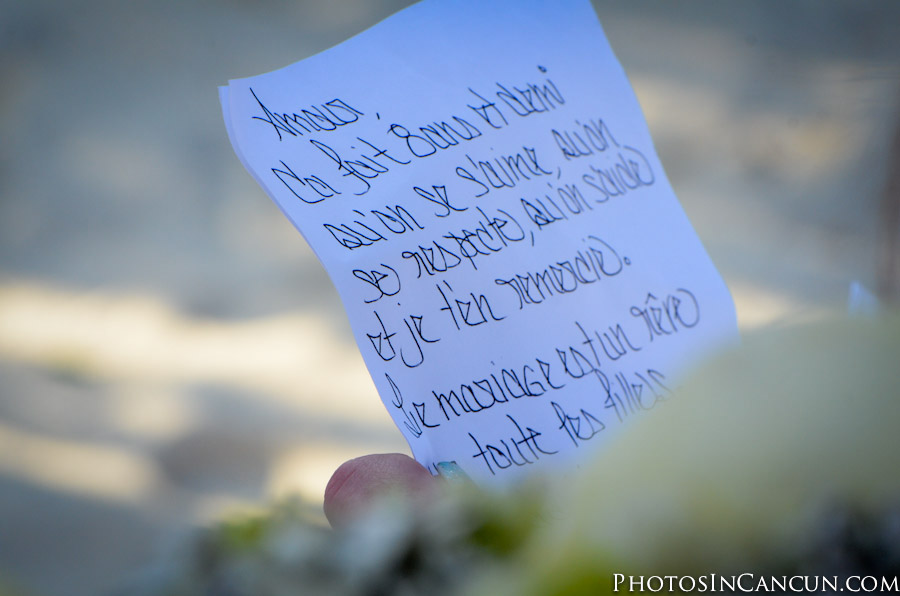 Amour,
Ca fait 8 ans et demi
qu'on se s'aime, qu'on
se respecte, qu'on s'aide
et je t'en remercie.
Le mariage est un rêve
toute les filles
PhotosInCancun.com